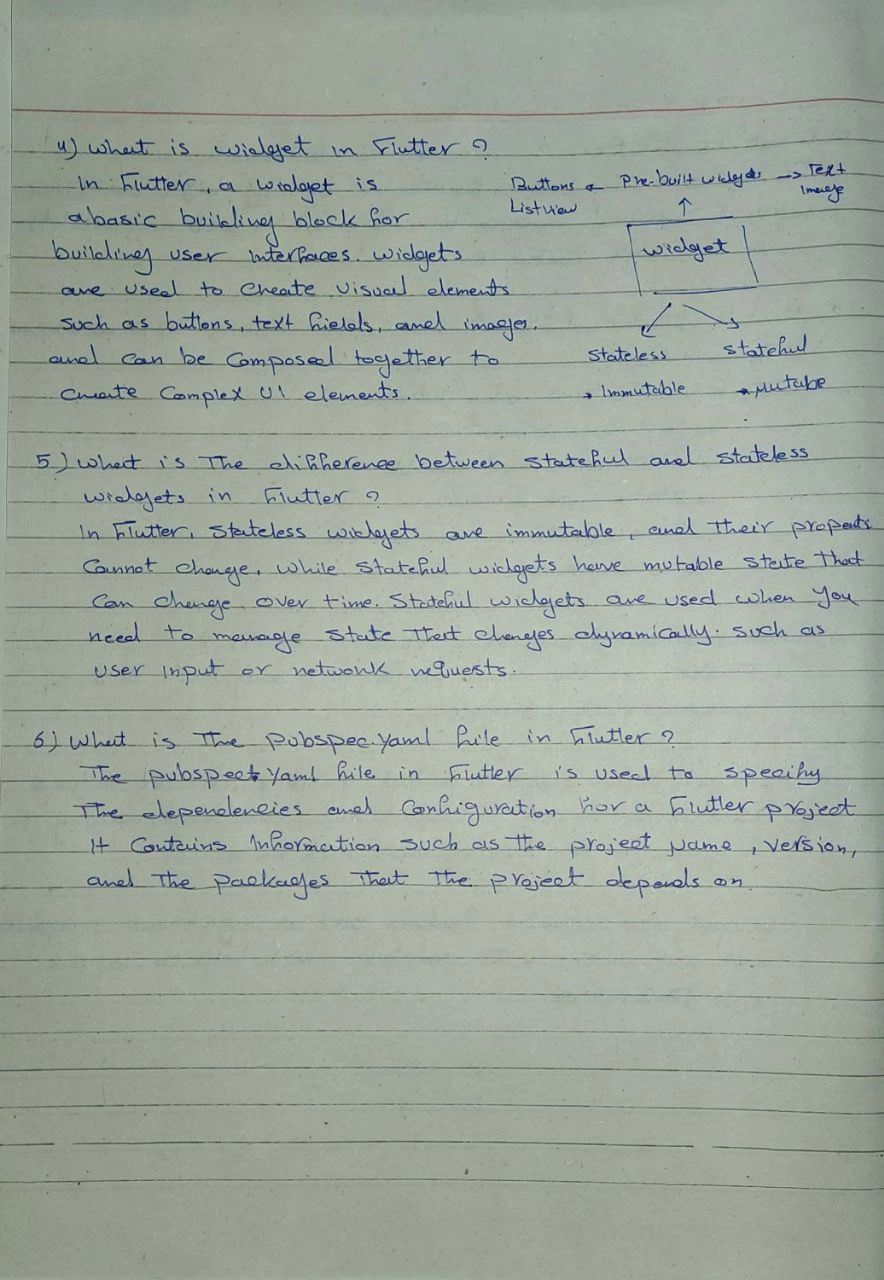 4) What is widget in Flutter ?
In Flutter, a widget is
a basic building block for
building user interfaces. widgets
are used to create visual elements
such as buttons, text fields, and images.
and can be composed together to
create complex UI elements.
Buttons ← Pre-built widgets → Text
ListView
Image
↑
widget
Stateless
Stateful
→ Immutable
→ Mutable
5) What is the difference between stateful and stateless
widgets in Flutter ?
In Flutter, Stateless widgets are immutable, and their properties
Cannot change, while Stateful widgets have mutable state that
can change over time. Stateful widgets are used when you
need to manage state that changes dynamically. such as
user input or network requests.
6) What is the pubspec.yaml file in Flutter ?
The pubspec.yaml file in Flutter is used to specify
The dependencies and configuration for a Flutter project
It contains information such as the project Name, version,
and the packages that the project depends on.